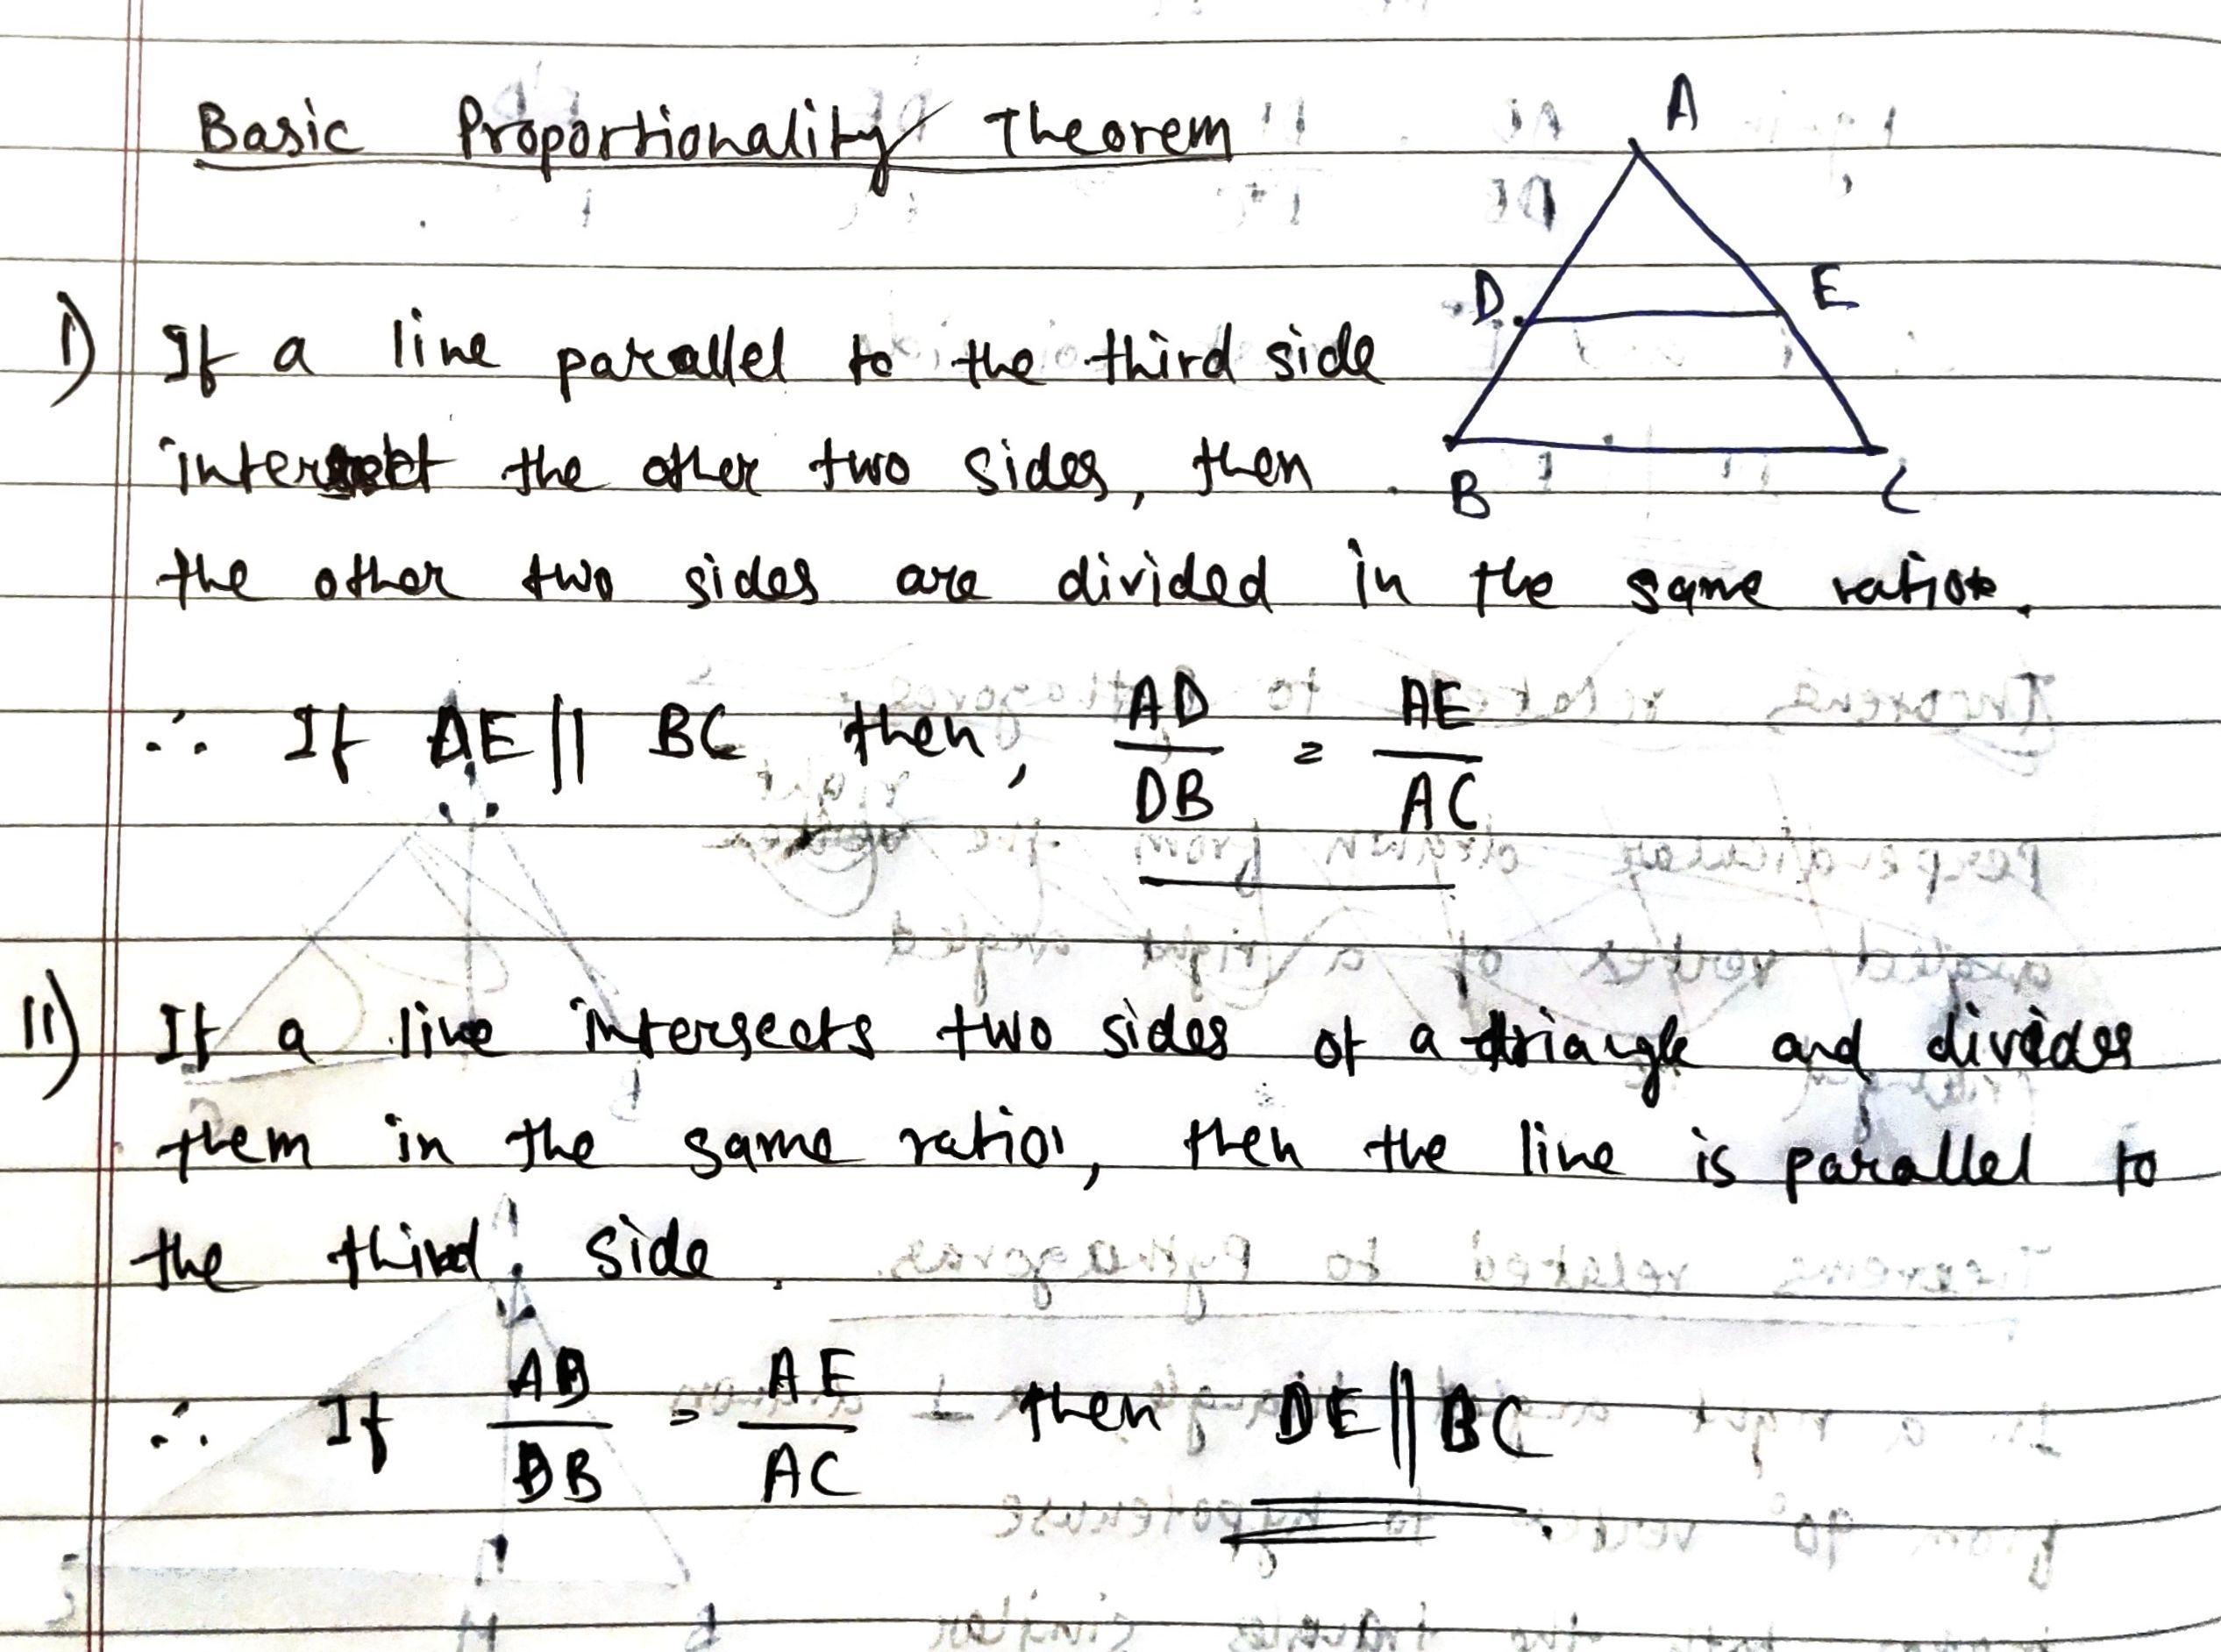 Basic Proportionality Theorem
A
D
E
B
C
I) If a line parallel to the third side
intersect the other two sides, then
the other two sides are divided in the same ratio.
∴ If DE || BC then, AD/DB = AE/AC
II) If a line intersects two sides of a triangle and divides
them in the same ratio, then the line is parallel to
the third side.
∴ If AD/DB = AE/AC then DE || BC